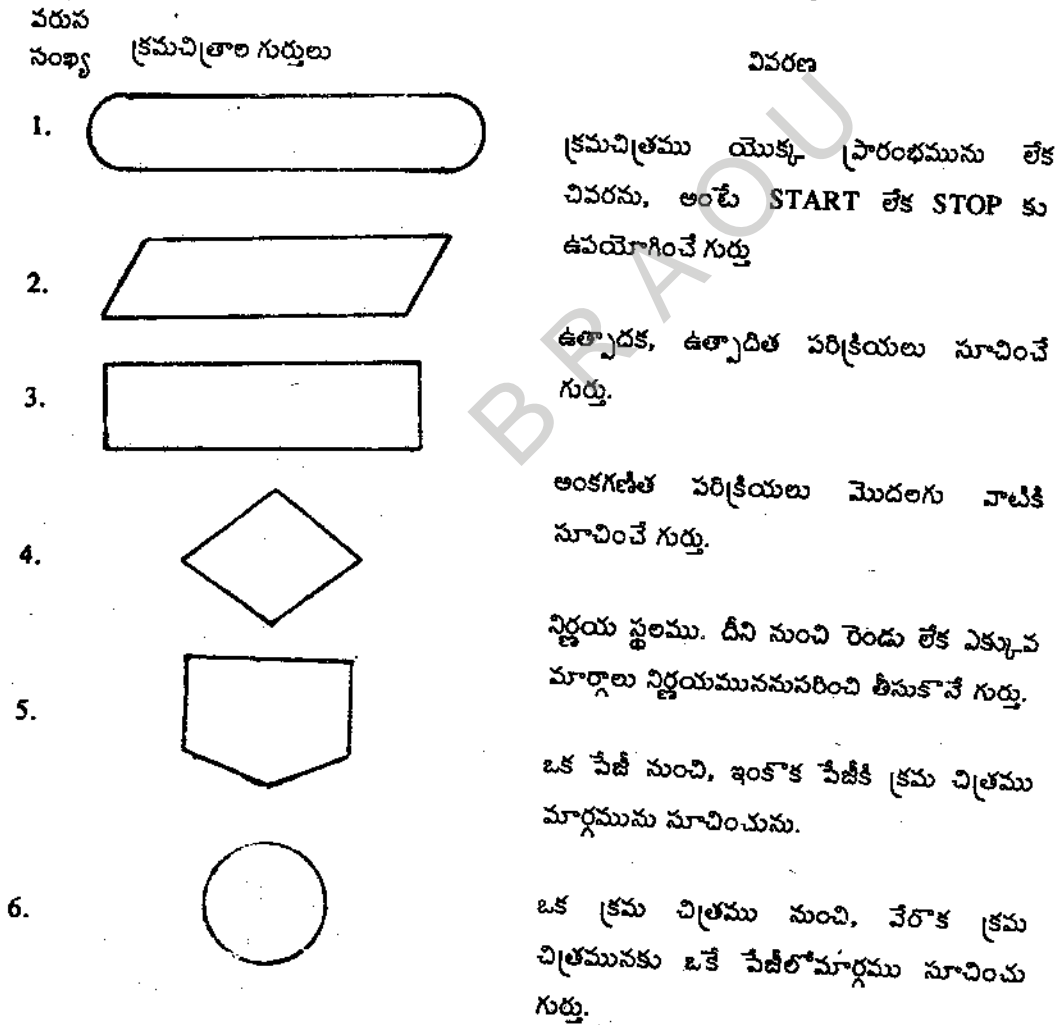 వరుస
సంఖ్య క్రమచిత్రాల గుర్తులు
వివరణ
1.
క్రమచిత్రము యొక్క ప్రారంభమును లేక
చివరను, అంటే START లేక STOP కు
ఉపయోగించే గుర్తు
2.
ఉత్పాదక, ఉత్పాదిత పరిక్రియలు సూచించే
గుర్తు.
3.
అంకగణిత పరిక్రియలు మొదలగు వాటికి
సూచించే గుర్తు.
4.
నిర్ణయ స్థలము. దీని నుంచి రెండు లేక ఎక్కువ
మార్గాలు నిర్ణయముననుసరించి తీసుకొనే గుర్తు.
5.
ఒక పేజీ నుంచి, ఇంకొక పేజీకి క్రమ చిత్రము
మార్గమును సూచించును.
6.
ఒక క్రమ చిత్రము నుంచి, వేరొక క్రమ
చిత్రమునకు ఒకే పేజీలోమార్గము సూచించు
గుర్తు.
BRAOU